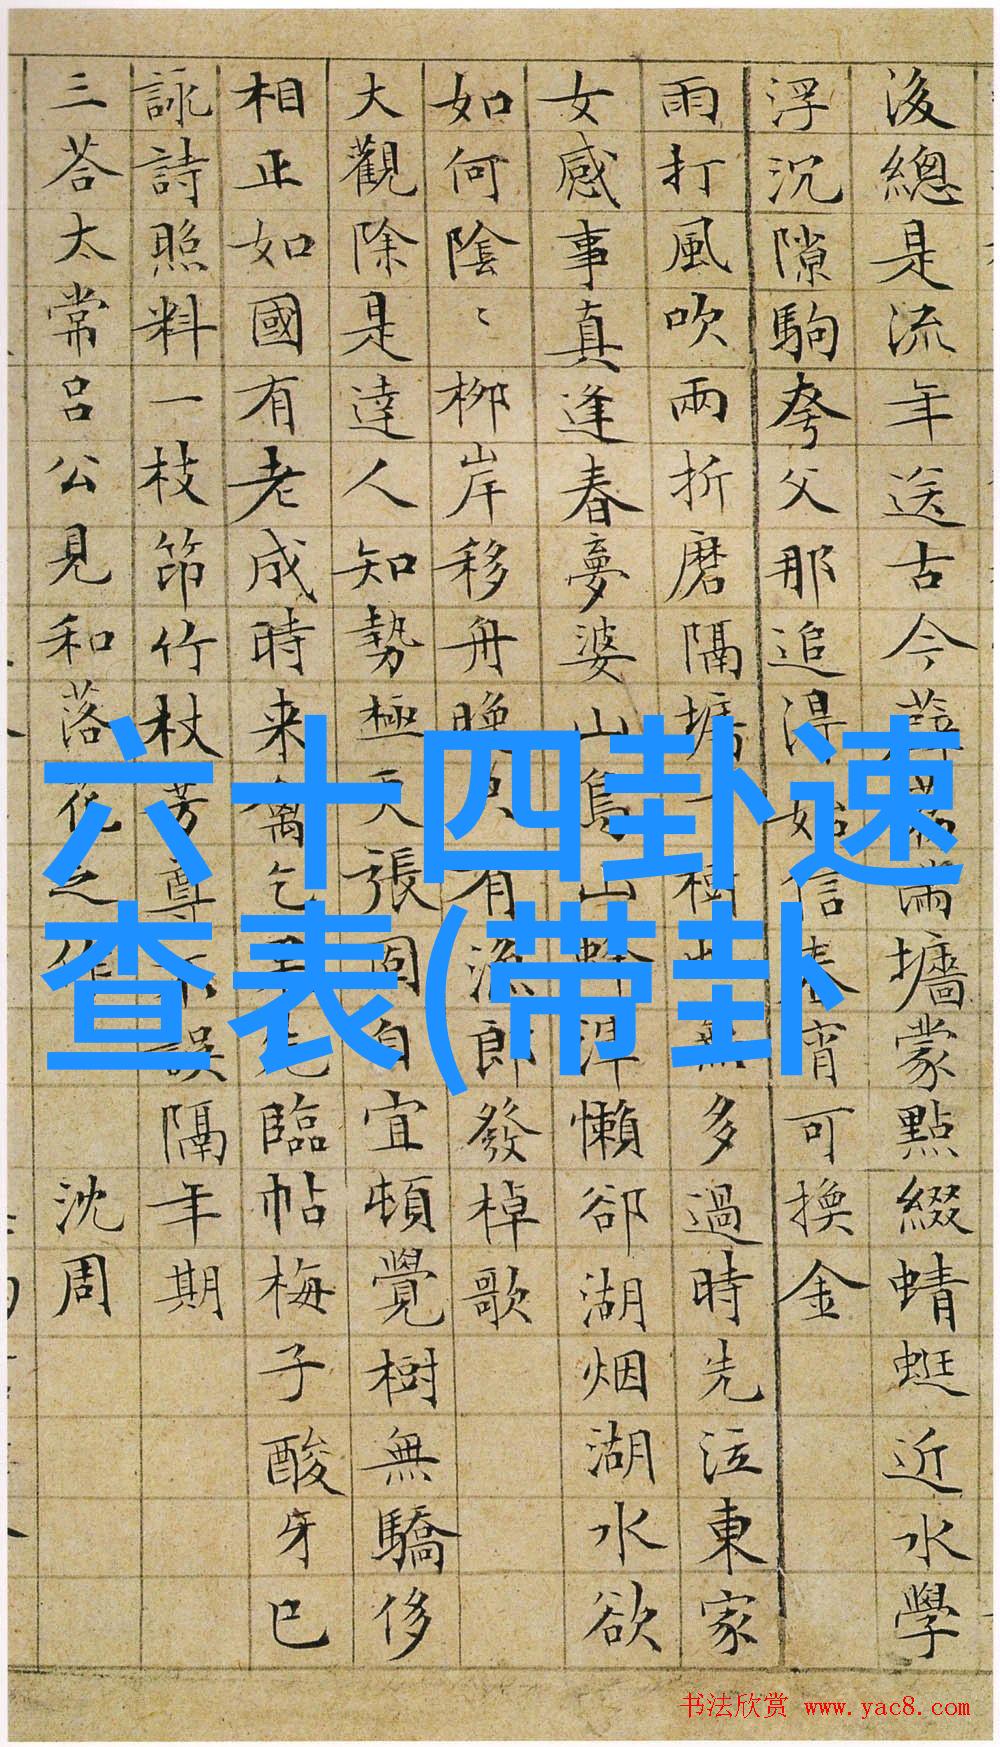 後總是流年送古今滿墻蒙點綴蜻蜓近水學
浮沉隙駒夸父那追得始信春宵可換金
雨打風吹兩折磨隔墻樹無多過時先泣東家
女感事真逢春夢婆山鳥山懶郤湖烟湖水欲
如何陰〻柳岸移舟晚只有漁郎發棹歌
大觀除是達人知勢極天張固自宜頓覺樹無驕侈
相正如國有老成時来禽乞先臨帖梅子酸牙已
詠詩照料一枝笻竹杖芳尊不誤隔年期
三荅太常呂公見和落花之作 沈周
六十四卦速
查表(带卦
书法欣赏 www.yac8.com